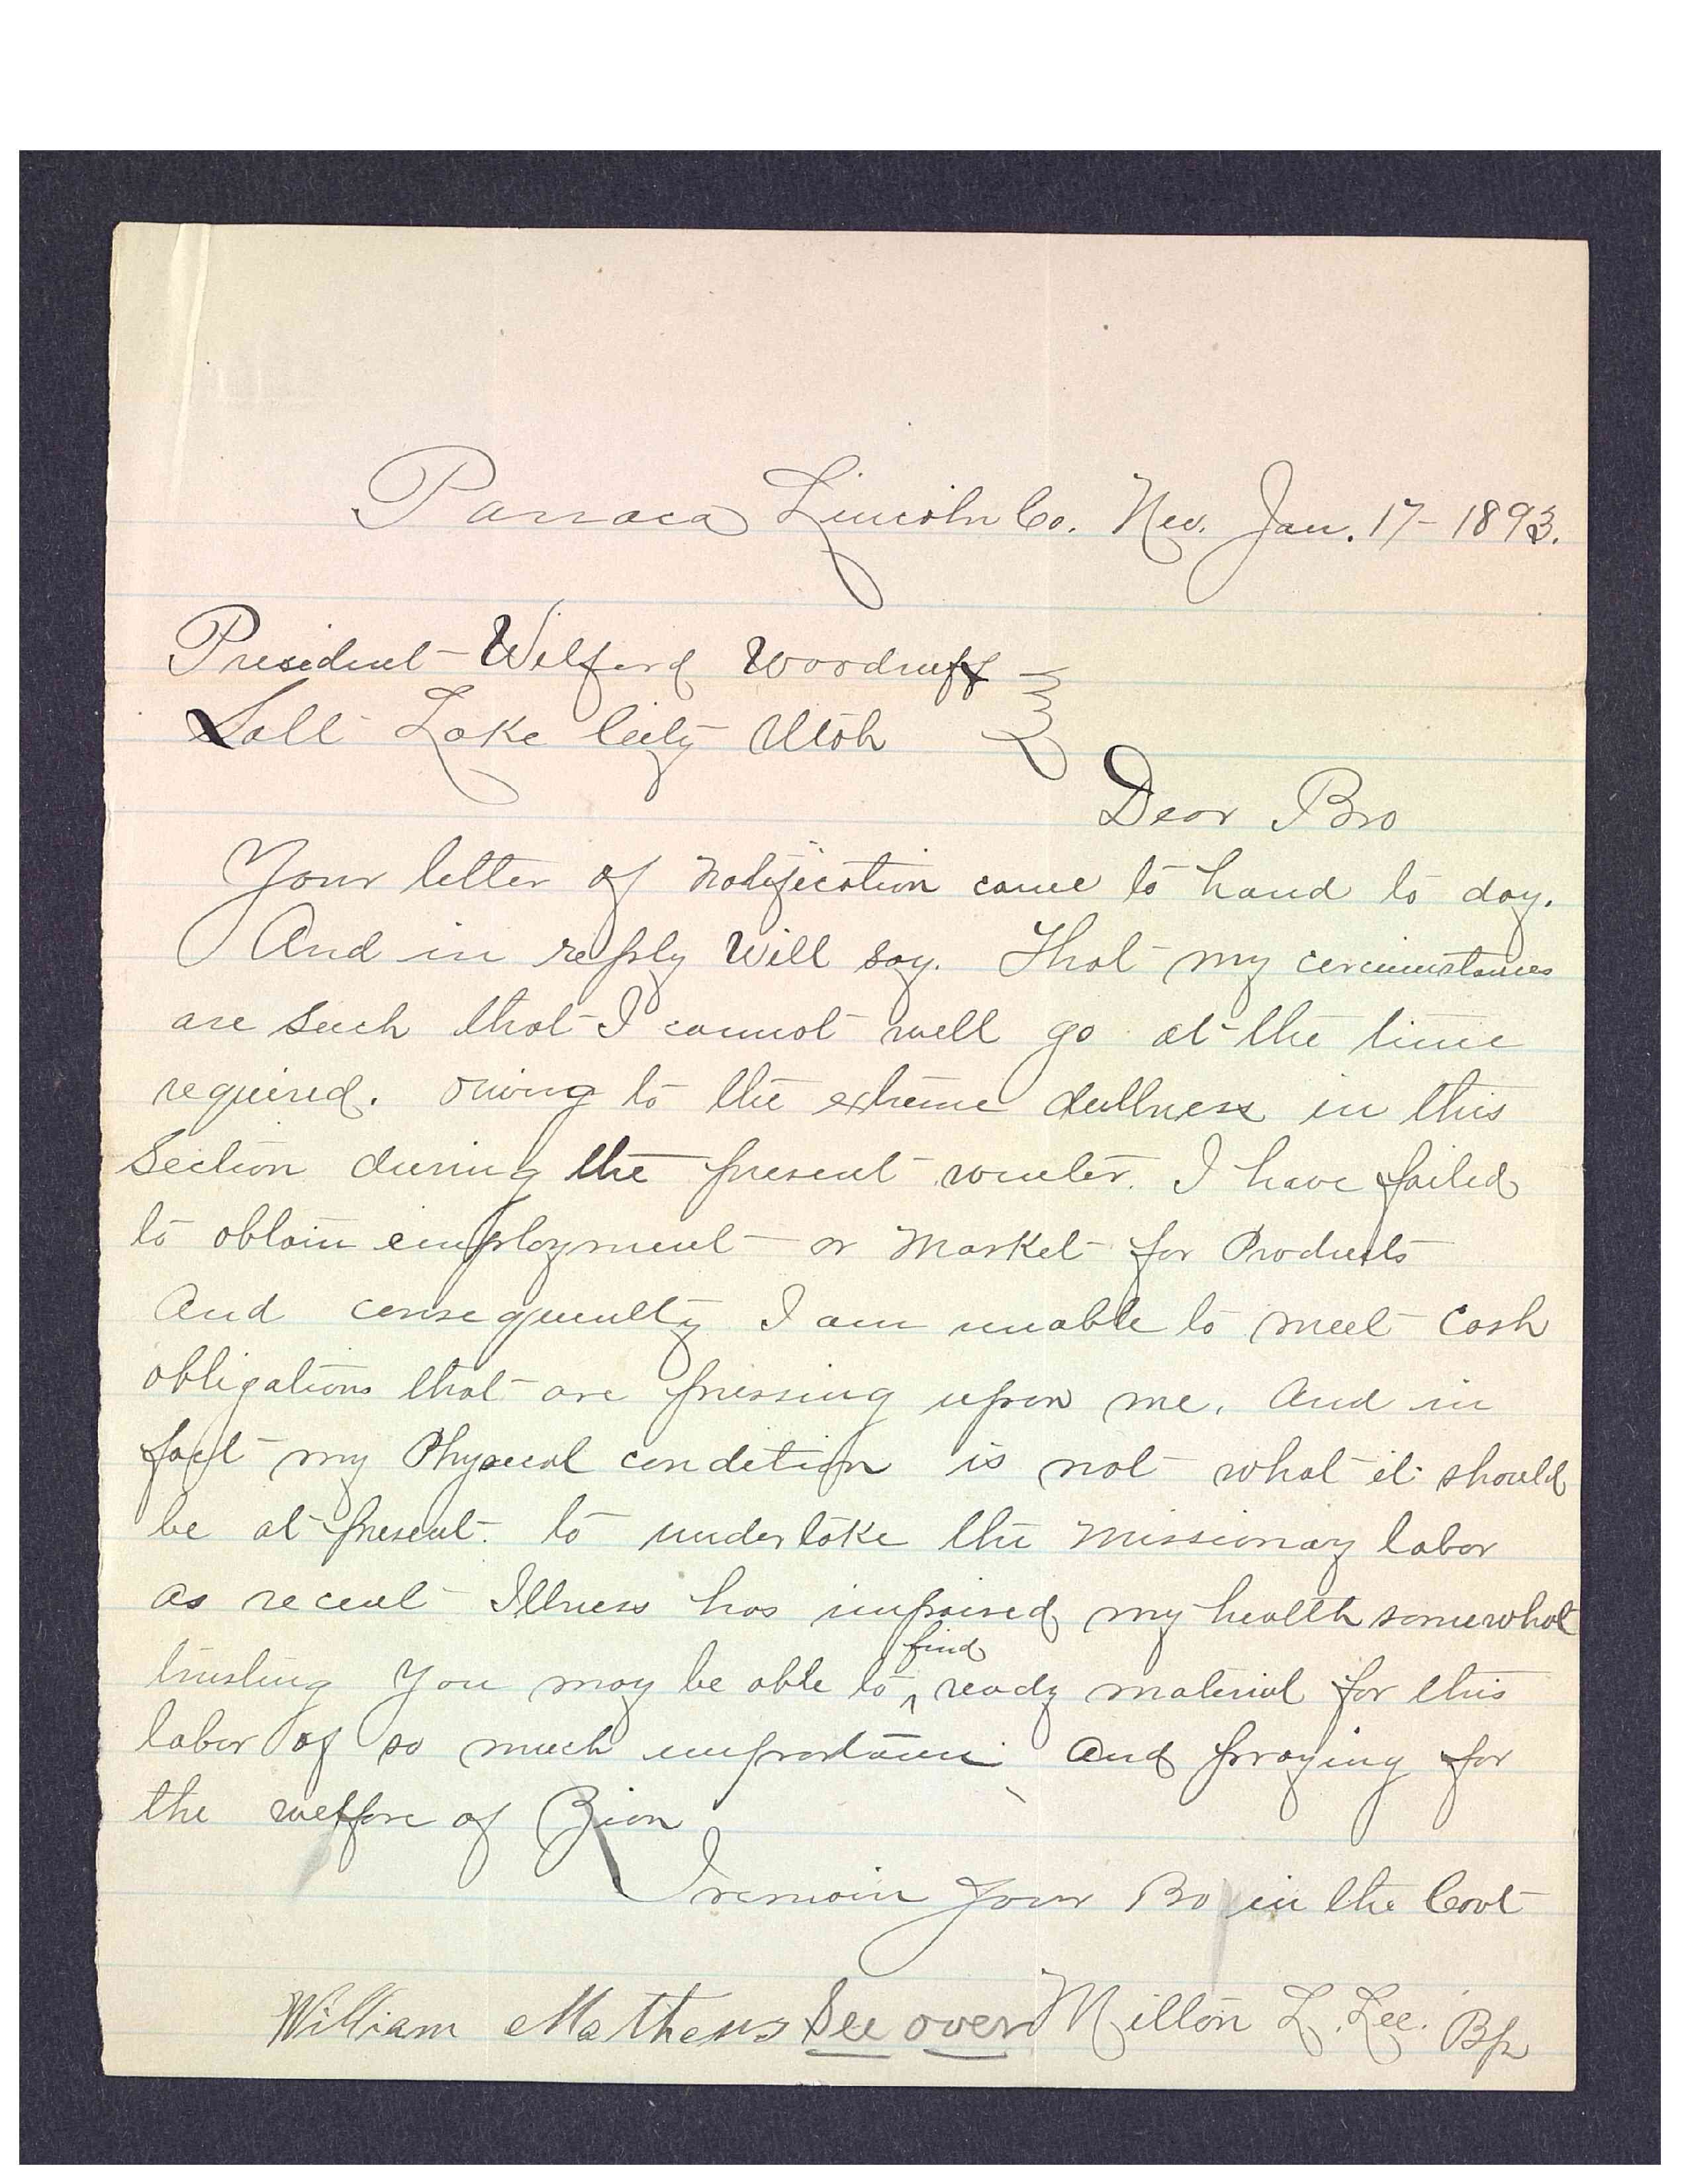 Panaca Lincoln Co. Nev. Jan. 17 - 1893.
President Wilford Woodruff
Salt Lake City Utah
Dear Bro
Your letter of notification came to hand to day.
And in reply will say. That my circumstances
are such that I cannot well go at the time
required. owing to the extreme dullness in this
Section during the present winter. I have failed
to obtain employment or market for Products
And consequently I am unable to meet cash
obligations that are pressing upon me. And in
fact my Physical condition is not what it should
be at present. to undertake the missionary labor
as recent Illness has impaired my health somewhat
trusting You may be able to find ready material for this
labor of so much importance and praying for
the welfare of Zion
I remain Your Bro in the Covt
William Mathews See over Milton L. Lee. Bp